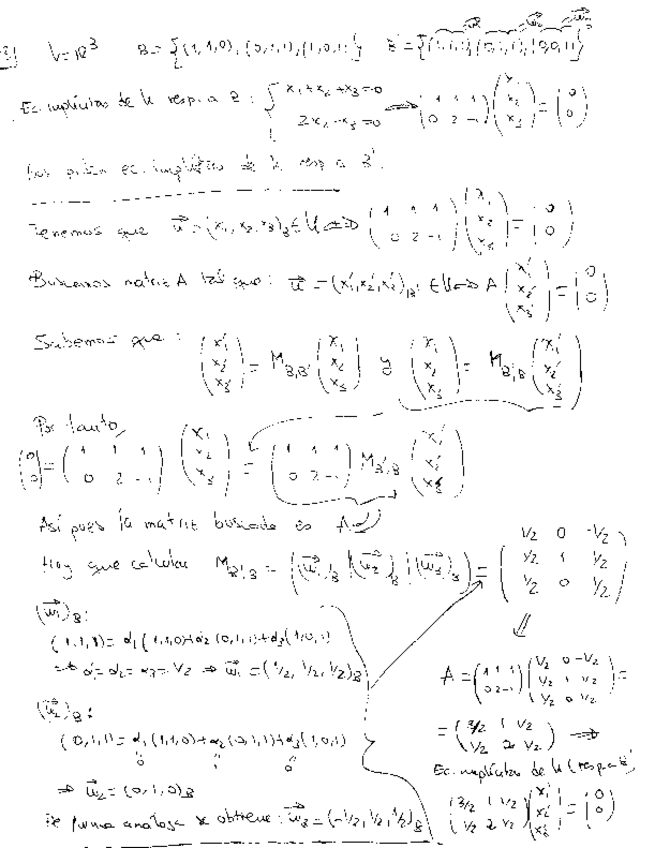 V=ℝ³ B={(1,1,0),(0,1,1),(1,0,1)} B'={(1,1,1),(0,1,1),(0,0,1)}
Ec. implícitas de U resp. a B: { x₁+x₂+x₃=0
2x₂-x₃=0 ⟹ (1 1 1 / 0 2 -1)(x₁ / x₂ / x₃)=(0 / 0)
Nos piden ec. implícitas de U resp a B'.
Tenemos que u⃗=(x₁,x₂,x₃)_B∈U⟺(1 1 1 / 0 2 -1)(x₁ / x₂ / x₃)=(0 / 0)
Buscamos matriz A tal que: u⃗=(x₁',x₂',x₃')_B'∈U⟺A(x₁' / x₂' / x₃')=(0 / 0)
Sabemos que: (x₁' / x₂' / x₃')=M_B,B'(x₁ / x₂ / x₃) y (x₁ / x₂ / x₃)=M_B',B(x₁' / x₂' / x₃')
Por tanto,
(0 / 0)=(1 1 1 / 0 2 -1)(x₁ / x₂ / x₃)=(1 1 1 / 0 2 -1)M_B',B(x₁' / x₂' / x₃')
Así pues la matriz buscada es A
Hay que calcular M_B',B=((w⃗₁)_B|(w⃗₂)_B|(w⃗₃)_B)=(1/2 0 -1/2 / 1/2 1 1/2 / 1/2 0 1/2)
(w⃗₁)_B:
(1,1,1)=α₁(1,1,0)+α₂(0,1,1)+α₃(1,0,1)
⟹α₁=α₂=α₃=1/2⟹w⃗₁=(1/2,1/2,1/2)_B
(w⃗₂)_B:
(0,1,1)=α₁(1,1,0)+α₂(0,1,1)+α₃(1,0,1)
0 1 0
⟹w⃗₂=(0,1,0)_B
De forma análoga se obtiene: w⃗₃=(-1/2,1/2,1/2)_B
A=(1 1 1 / 0 2 -1)(1/2 0 -1/2 / 1/2 1 1/2 / 1/2 0 1/2)=
=(3/2 1 1/2 / 1/2 2 1/2)⟹
Ec. implícitas de U (resp a B')
(3/2 1 1/2 / 1/2 2 1/2)(x₁' / x₂' / x₃')=(0 / 0)